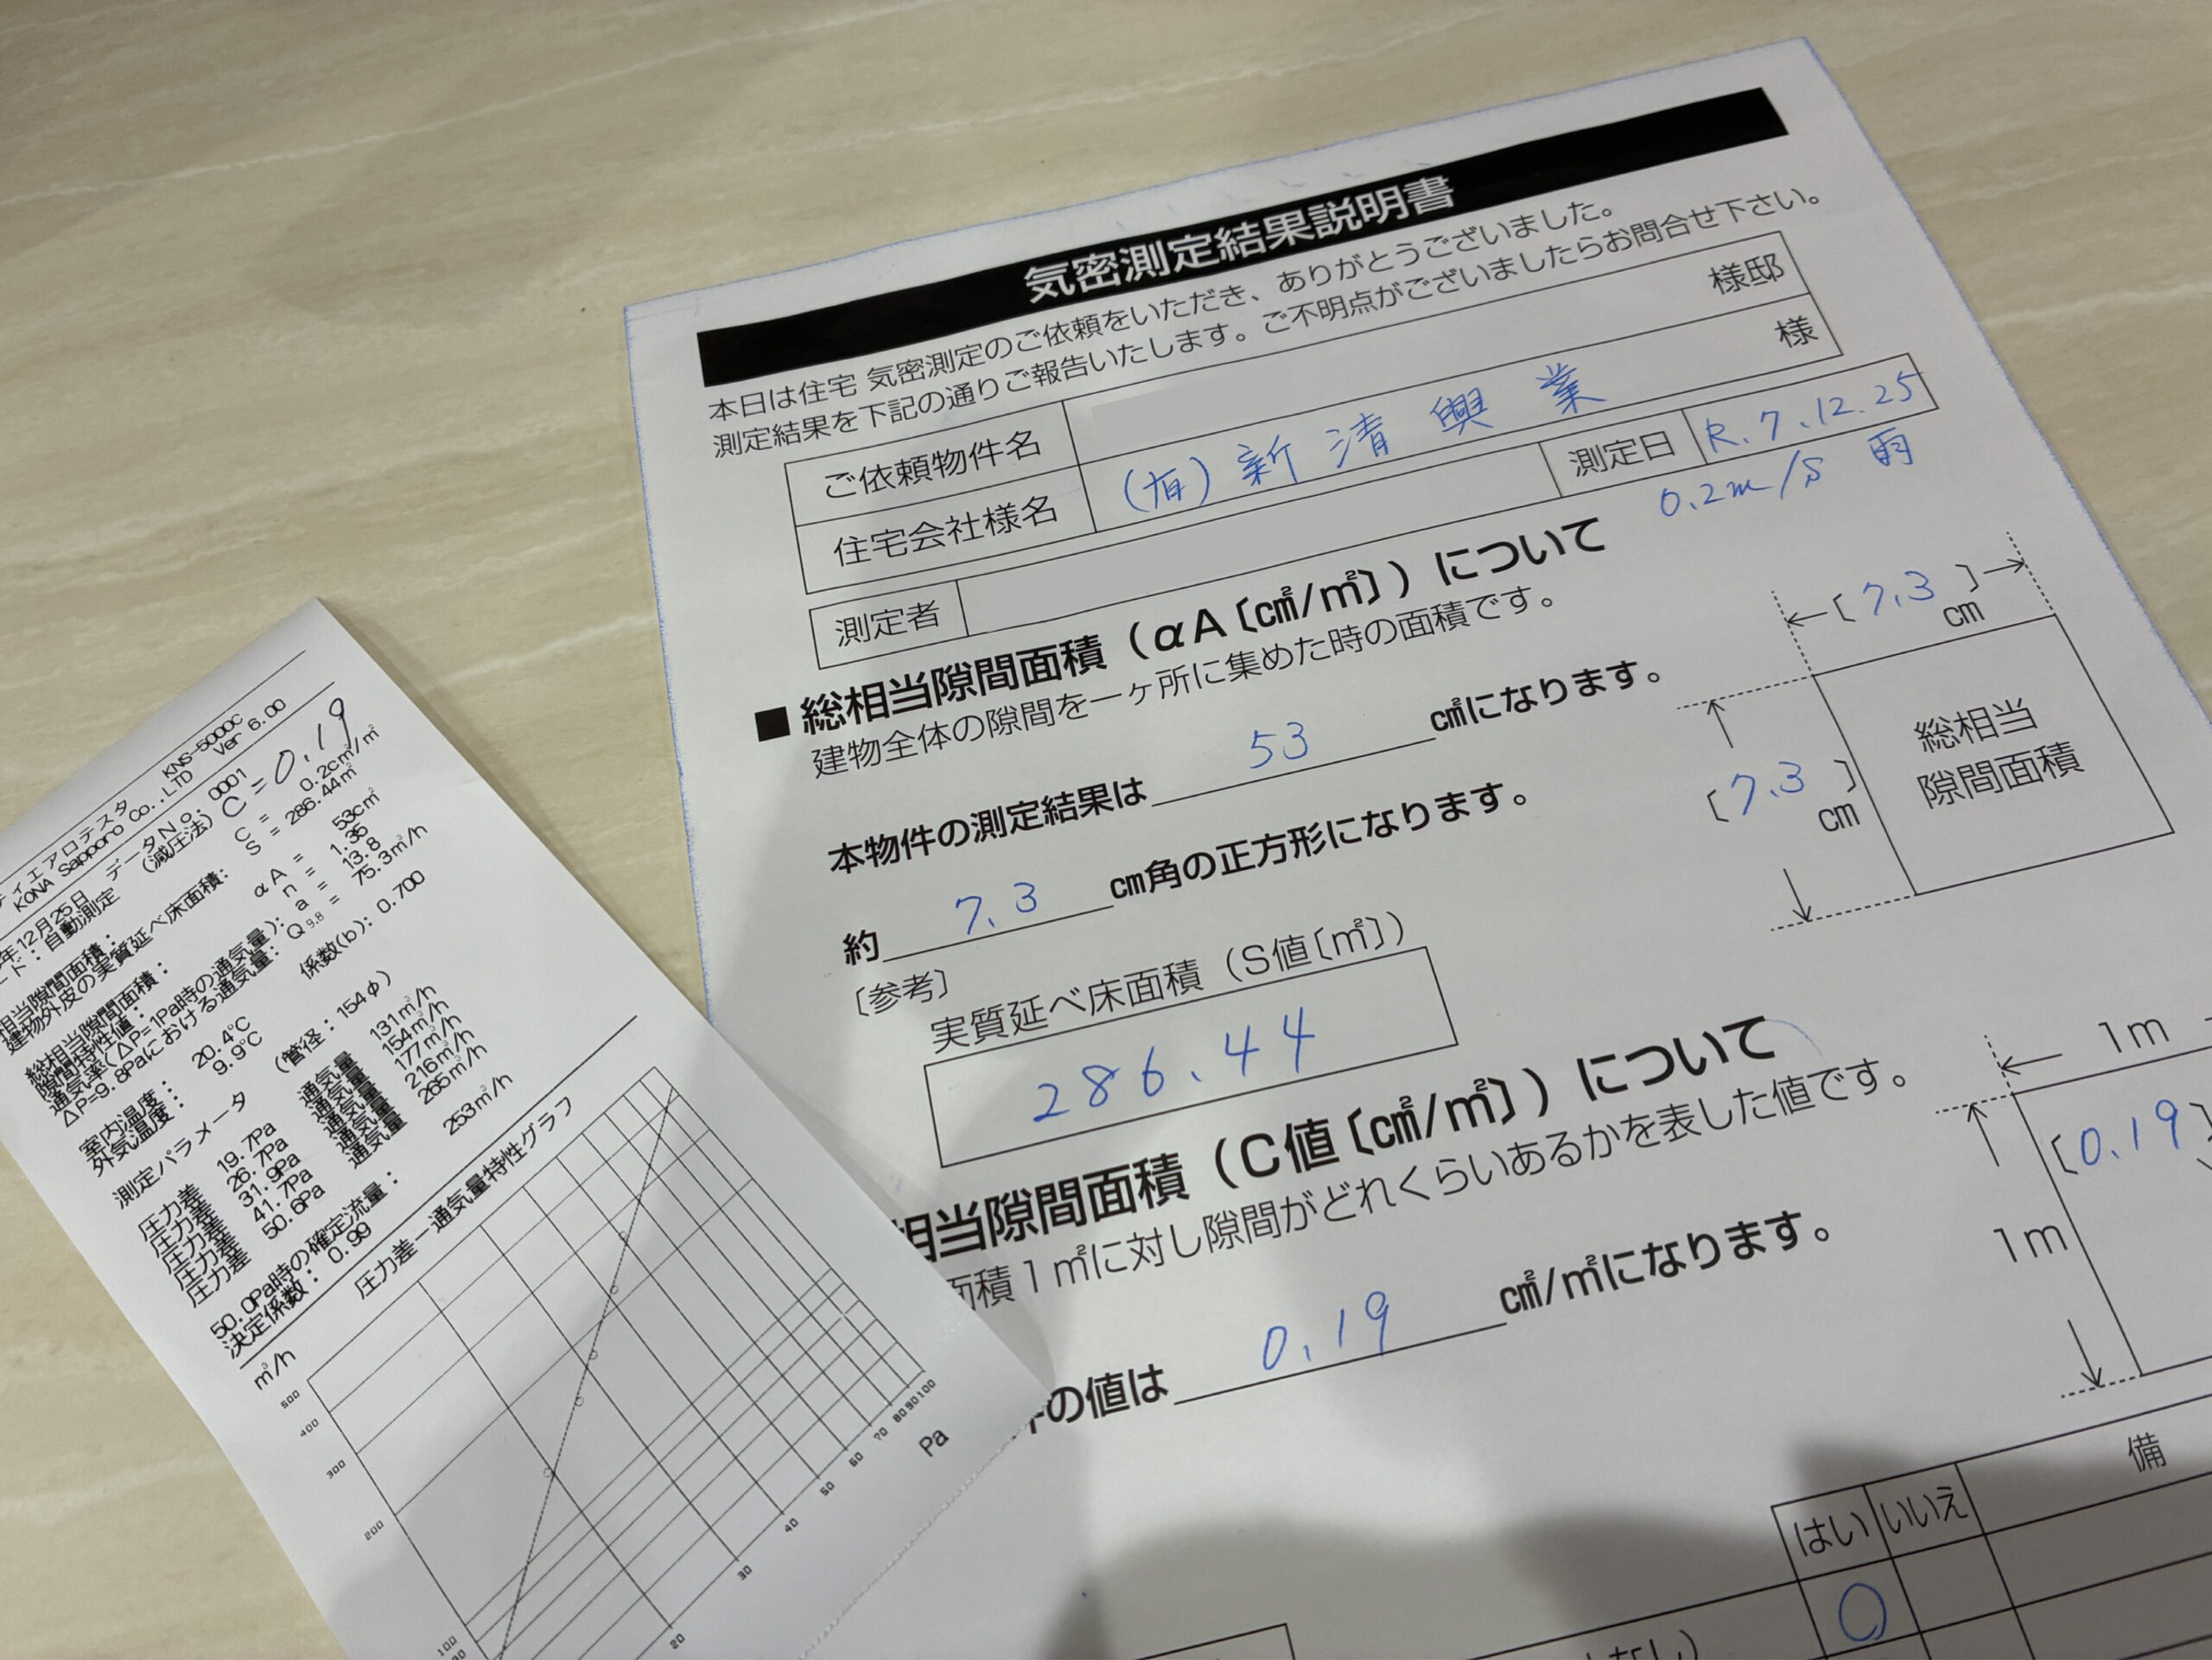 気密測定結果説明書
本日は住宅 気密測定のご依頼をいただき、ありがとうございました。
測定結果を下記の通りご報告いたします。ご不明点がございましたらお問合せ下さい。
ご依頼物件名 様邸
住宅会社様名 (有)新清興業 様
測定者 測定日 R.7.12.25
0.2m/S 雨
■総相当隙間面積(αA〔c㎡/㎡〕)について
建物全体の隙間を一ヶ所に集めた時の面積です。
本物件の測定結果は 53 c㎡になります。
約 7.3 cm角の正方形になります。
〔7.3〕cm
〔7.3〕cm
総相当
隙間面積
〔参考〕
実質延べ床面積(S値〔㎡〕)
286.44
相当隙間面積(C値〔c㎡/㎡〕)について
面積1㎡に対し隙間がどれくらいあるかを表した値です。
の値は 0.19 c㎡/㎡になります。
1m
1m
〔0.19〕
はい いいえ 備
○
なし)
KNS-5000C
ィエアロテスタ Ver 6.00
KONA Sapporo Co.,LTD
年12月25日 データNo: 0001
ード:自動測定 (減圧法) C=0.19
相当隙間面積: C = 0.2cm²/m²
建物外皮の実質延べ床面積: S = 286.44m²
総相当隙間面積: αA = 53cm²
隙間特性値: n = 1.35
通気率(ΔP=1Pa時の通気量): a = 13.8
ΔP=9.8Paにおける通気量: Q9.8 = 75.3m³/h
室内温度: 20.4℃
外気温度: 9.9℃ 係数(b): 0.700
測定パラメータ (管径:154φ)
圧力差 19.7Pa 通気量 131m³/h
圧力差 26.7Pa 通気量 154m³/h
圧力差 31.9Pa 通気量 177m³/h
圧力差 41.7Pa 通気量 216m³/h
圧力差 50.6Pa 通気量 265m³/h
50.0Pa時の確定流量: 253m³/h
決定係数: 0.99
圧力差ー通気量特性グラフ
m³/h
500
400
300
200
100
20 30 40 50 60 70 80 90 100
Pa